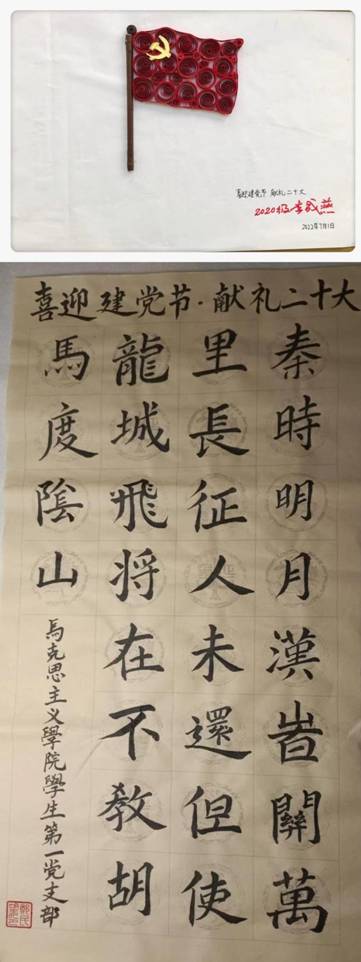 喜迎建党节 献礼二十大
2020级李成燕
2022年7月1日
喜迎建党节·献礼二十大
秦時明月漢旹關萬
里長征人未還但使
龍城飛将在不教胡
馬度陰山
馬克思主义學院學生第一党支部